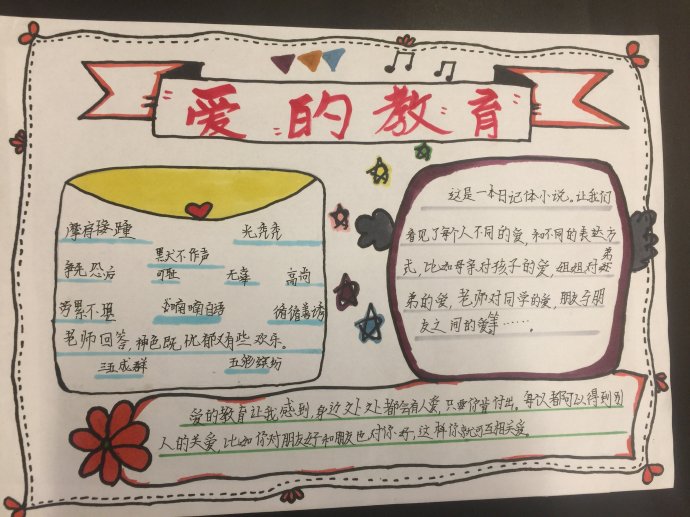 爱的教育
摩肩接踵 光秃秃
默不作声
争先恐后 可耻 无辜 高尚
劳累不堪 喃喃自语 循循善诱
老师回答,神色既忧郁又有些欢乐。
三五成群 五彩缤纷
这是一本日记体小说。让我们
看见了每个人不同的爱,和不同的表达方
式,比如母亲对孩子的爱,姐姐对弟
弟的爱,老师对同学的爱,朋友与朋
友之间的爱等……。
爱的教育让我感到,身边处处都会有人爱,只要你肯付出。都可以得到别
人的关爱,比如你对朋友好和朋友也对你好,这样你就可互相关爱。